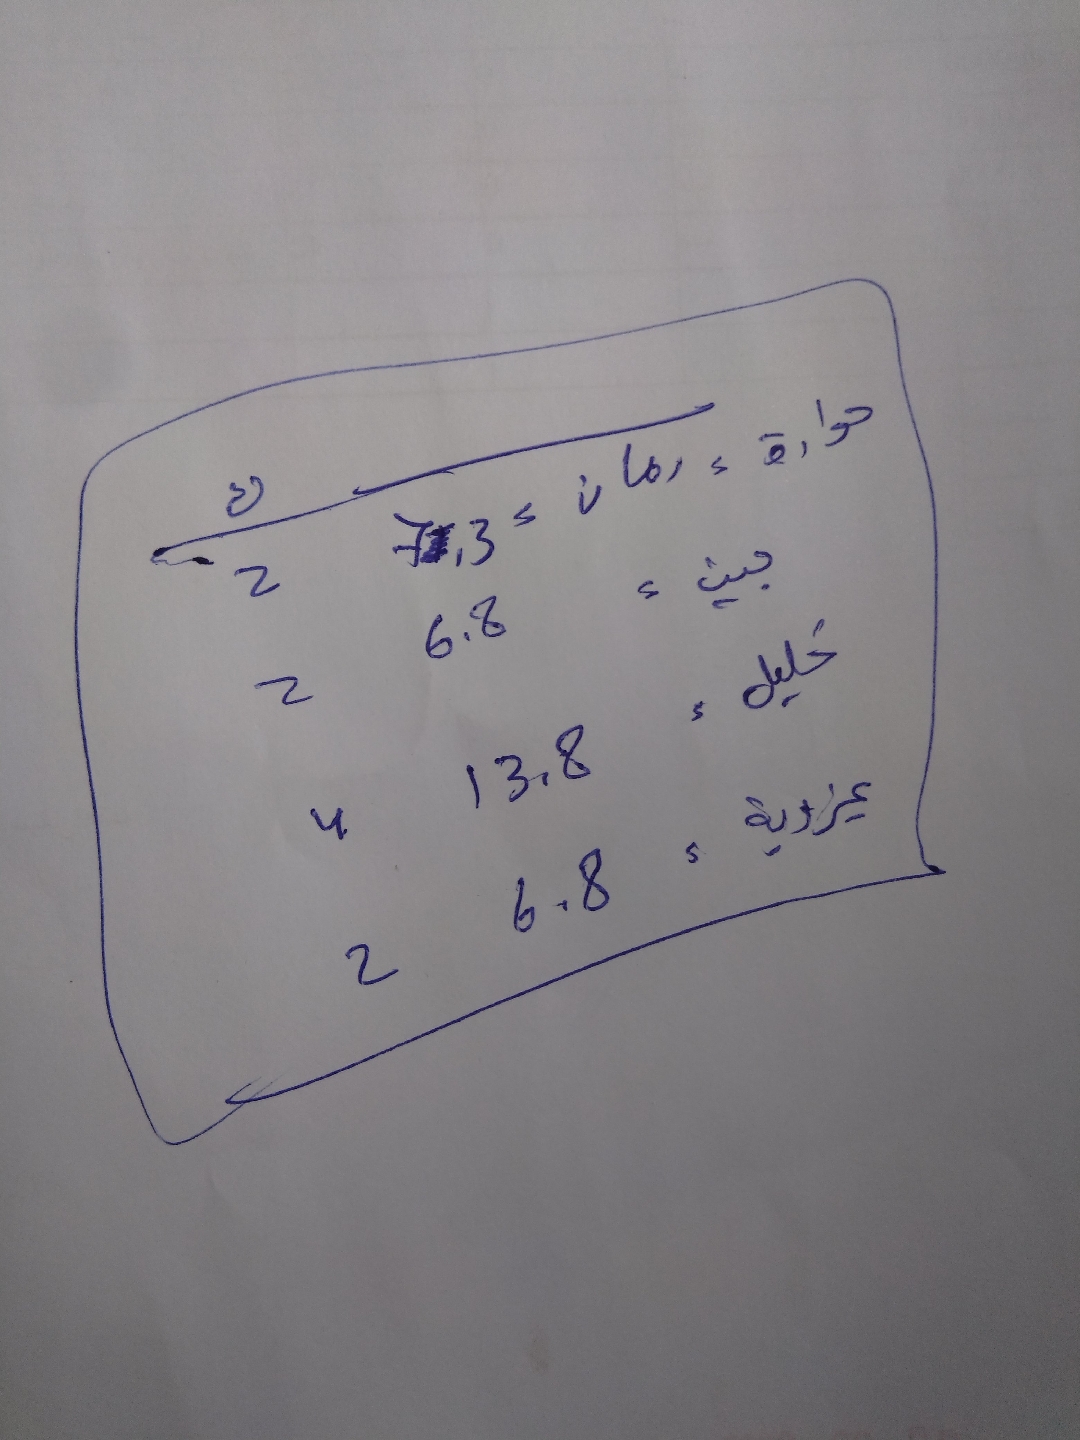 ن
حوارة ، رمان ، 7.3 2
جين ، 6.8 2
خليل ، 13.8 4
عيزوية ، 6.8 2